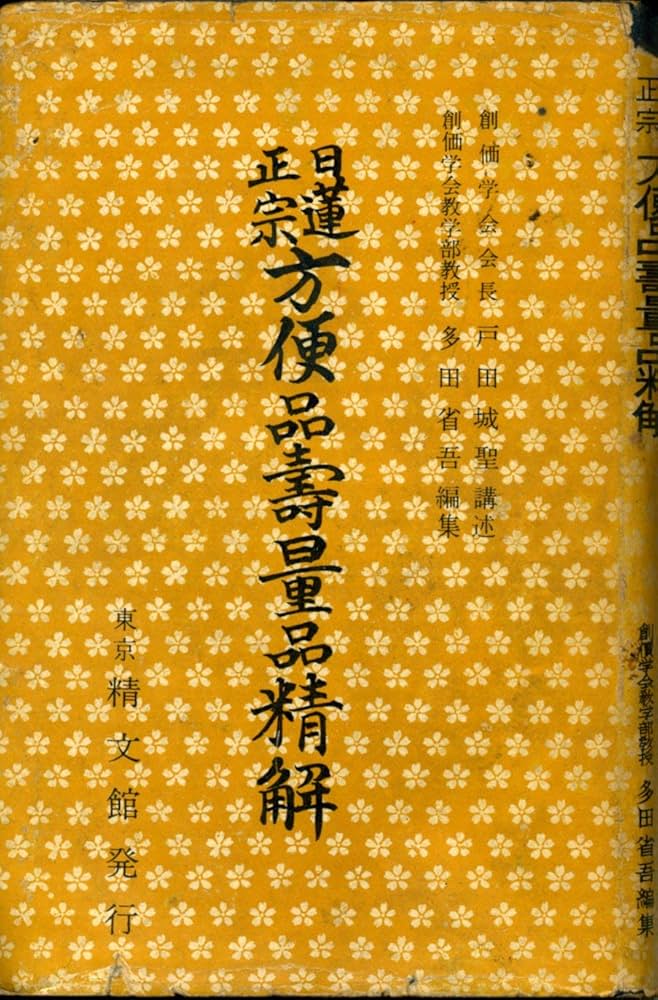 創価学会会長 戸田城聖講述
創価学会教学部教授 多田省吾編集
日蓮正宗 方便品壽量品精解
東京 精文館発行
正宗 方便品壽量品精解
創價学会教学部教授 多田省吾編集